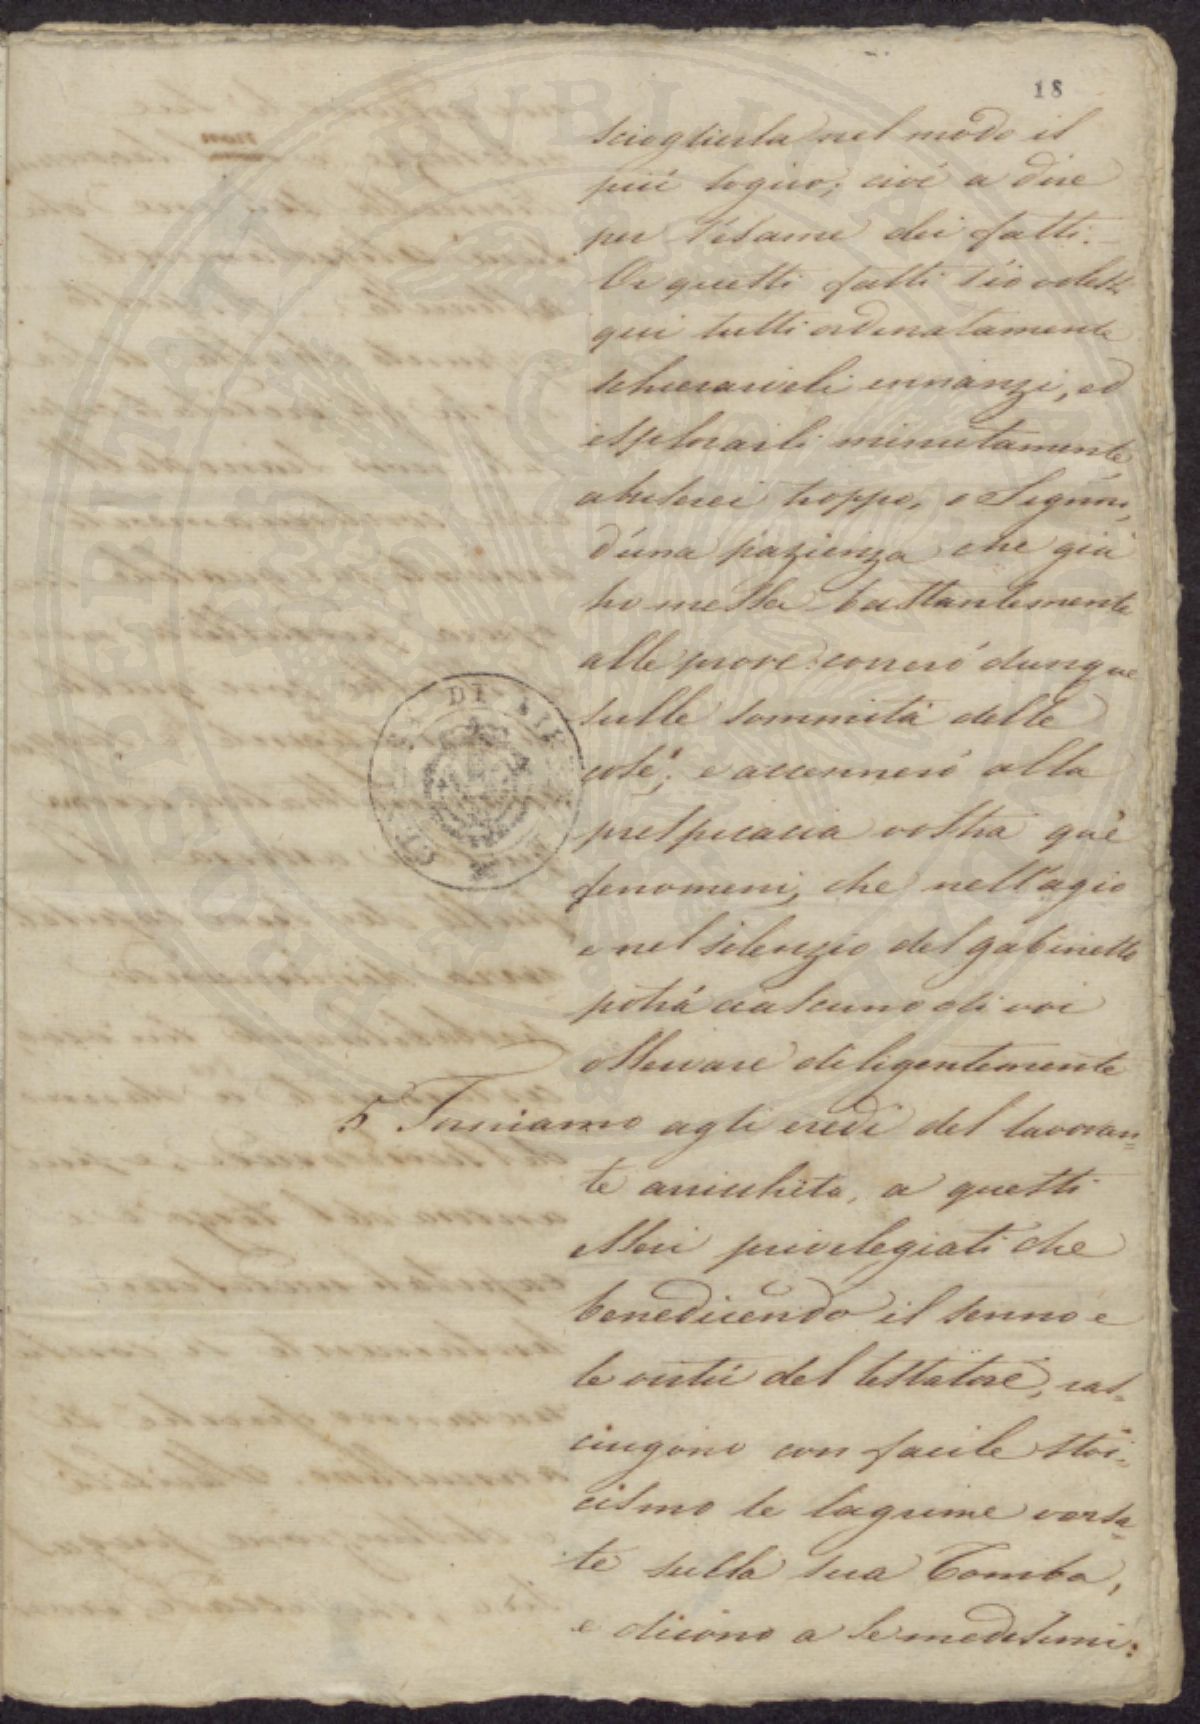 18
scioglierla nel modo il
più logico; cioè a dire
per l'esame dei fatti.
Or questi fatti s'io volessi
qui tutti ordinatamente
schierarveli innanzi, ed
esplorarli minutamente
abuserei troppo, o Signori,
d'una pazienza che già
ho messa bastantemente
alle prove: correrò dunque
sulle sommità delle
cose; e accennerò alla
prespicacia vostra què
fenomeni, che nell'agio
e nel silenzio del gabinetto
potrà ciascuno di voi
osservare diligentemente
5 Torniamo agli eredi del lavoran=
te arricchito, a questi
esseri privilegiati che
benedicendo il senno e
le virtù del testatore, ras=
ciugono con facile stoi=
cismo le lagrime versa=
te sulla sua Tomba,
e dicono a se medesimi:
DI